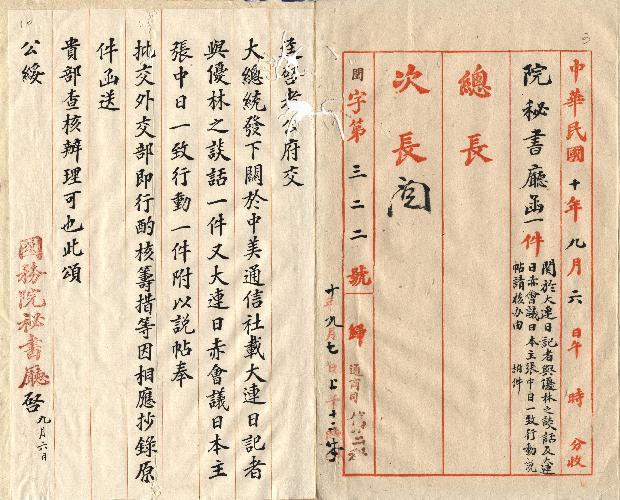 中華民國十年九月六日午 時 分收
院秘書廳函一件
關於大連日記者與優林之談話及大連
日赤會議日本主張中日一致行動說
帖請核办由 附件
總長
次長
閣字第三二二號
歸
通商司
十年九月七日上午十二時
逕啓者公府交
大總統發下關於中美通信社載大連日記者
與優林之談話一件又大連日赤會議日本主
張中日一致行動一件附以說帖奉
批交外交部即行酌核籌措等因相應抄錄原
件函送
貴部查核辦理可也此頌
公綏
國務院秘書廳啓
九月六日